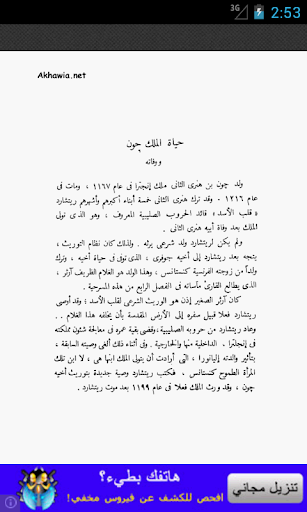 3G 2:53
Akhawia.net
حياة الملك چون
ووفاته
ولد چون بن هنرى الثانى ملك إنجلترا فى عام ١١٦٧ ، ومات فى
عام ١٢١٦ . وقد ترك هنرى الثانى خمسة أبناء أكبرهم وأشهرهم ريتشارد
« قلب الأسد » قائد الحروب الصليبية المعروف ، وهو الذى تولى
الملك بعد وفاة أبيه هنرى الثانى .
ولم يكن لريتشارد ولد شرعى يرثه . ولذلك كان نظام التوريث ،
يتجه بعد ريتشارد إلى أخيه جوفرى ، الذى توفى فى حياة أخيه ، وترك
ولداً من زوجته الفرنسية كنستانس ، وهذا الولد هو الغلام الظريف آرثر ،
الذى يطالع القارئ مأساته فى الفصل الرابع من هذه المسرحية .
كان آرثر الصغير إذن هو الوريث الشرعى لقلب الأسد ؛ وقد أوصى
ريتشارد فعلا قبيل سفره إلى الأرض المقدسة بأن يخلفه هذا الغلام .
وعاد ريتشارد من حروبه الصليبية ، وقضى بقية عمره فى معالجة شئون مملكته
فى إنجلترا . الداخلية منها والخارجية . وفى أثناء ذلك ألغى وصيته السابقة ،
بتأثير والدته إليانورا ، التى أرادت أن يتولى الملك ابنها هى ، لا ابن تلك
المرأة الطموح كنستانس . فكتب ريتشارد وصية جديدة بتوريث أخيه
چون ، وقد ورث الملك فعلا فى عام ١١٩٩ بعد موت ريتشارد .
هاتفك بطيء؟
افحص للكشف عن فيروس مخفي!
تنزيل مجاني